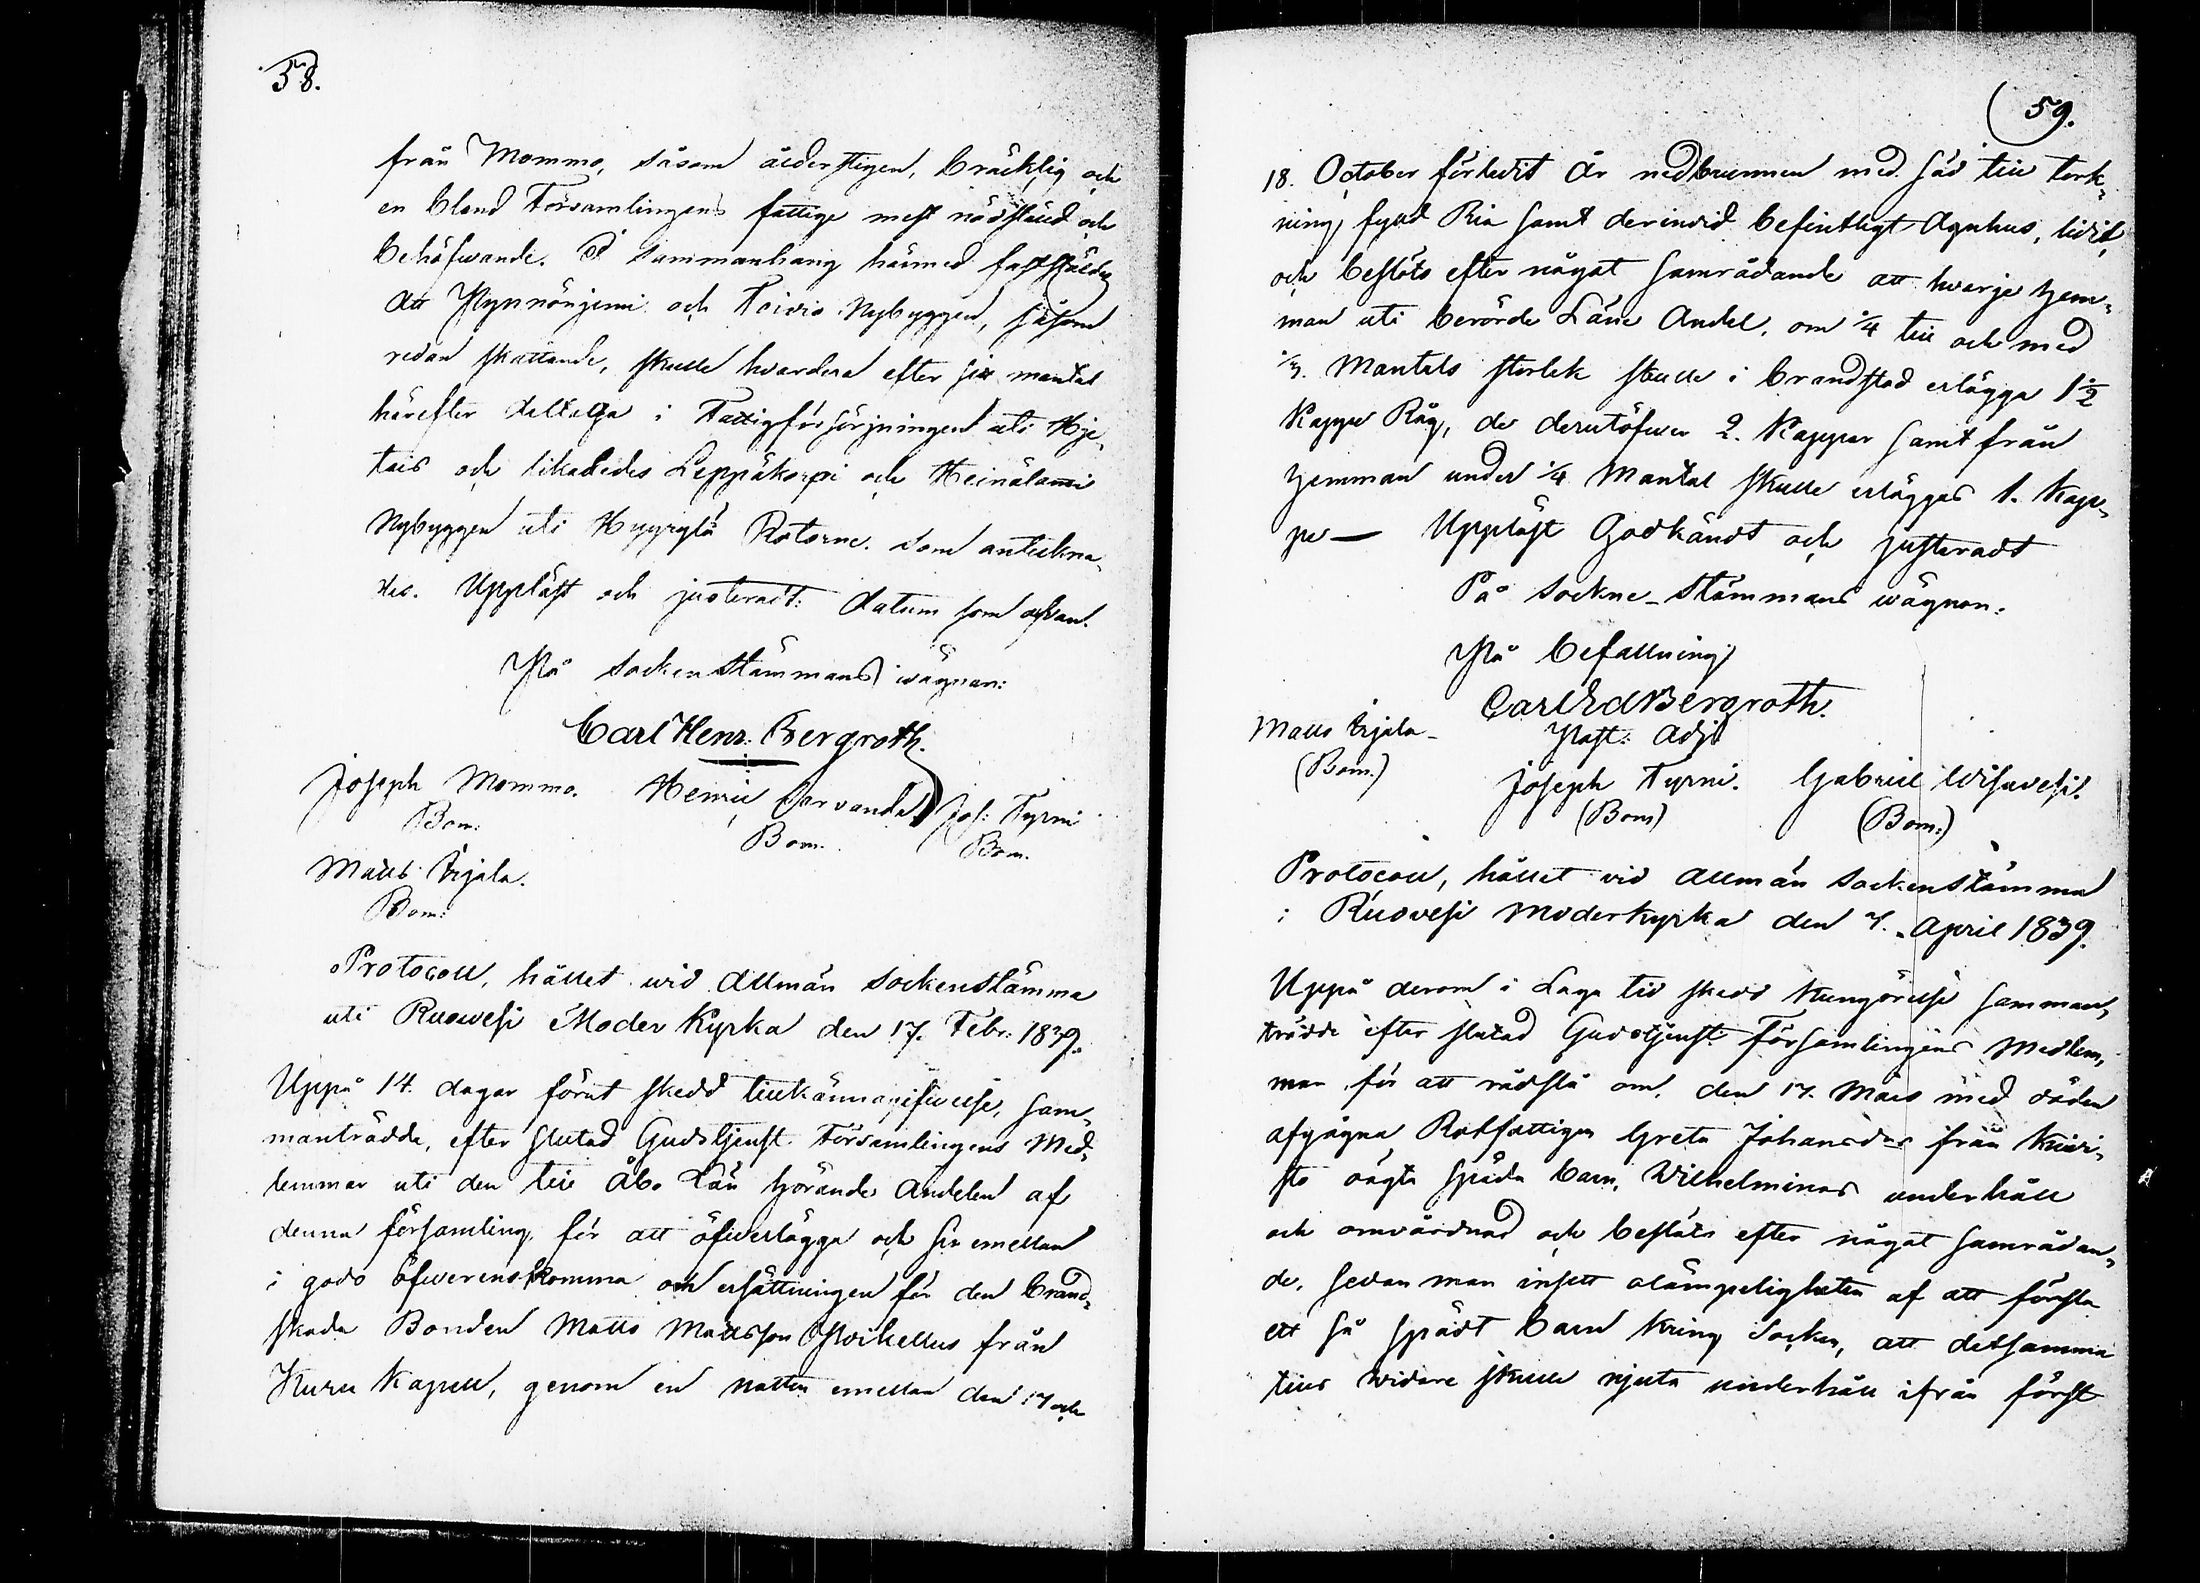 58.
från Mommo, såsom ålderstigen, bräcklig och
en bland Församlingens fattige mest nödställd och
behöfwande. I sammanhang härmed fastställdes
att Pynnönjemi och Toivio Nybyggen, såsom
redan skattande, skulle hvardera efter sitt mantal
härefter deltaga i Fattigförsörjningen uti Hje-
tois och likaledes Leppäkorpi och Heinälami
Nybyggen uti Hyyrylä Rotorne. Som antekna-
des. Uppläst och justeradt: datum som ofvan.
På Sockenstämmans wägnar:
Carl Henr: Bergroth.
Joseph Mommo. Henric Sarvanda Jos: Tyrni
Bom: Bom. Bom.
Matts Erjala.
Bom:
Protocoll, hållet wid Allmän Sockenstämma
uti Ruowesi Moder Kyrka den 17. Febr: 1839.
Uppå 14. dagar förut skedd tillkännagifwelse, sam-
manträdde, efter slutad Gudstjenst Församlingens Med-
lemmar uti den till Åbo Län hörande Andelen af
denna församling, för att öfwerlägga och sin emellan
i godo öfwerenskomma om ersättningen för den brand-
skada Bonden Matts Mattsson Pihellus från
Kuru Kapell, genom en natten emellan den 17 och
59.
18. October förledit år nedbrunnen med Säd till tork-
ning fylld Ria samt derinwid befintligt Agnhus, lidit,
och beslöts efter något samrådande att hwarje hem-
man uti berörde Läne Andel, om 1/4 till och med
1/3. Mantals storlek skulle i brandstod erlägga 1 1/2
Kappe Råg, de derutöfwer 2. Kappar samt från
hemman under 1/4 Mantal skulle erläggas 1. Kap-
pe — Uppläst Godkändt och justeradt
På Sockne-Stämmans wägnar:
På befallning
Carl Ed Bergroth.
Matts Erjala - Past: Adj:
(Bom.) Joseph Tyrni. Gabriel Wisuvesi.
(Bom) (Bom:)
Protocoll, hållet vid Allmän Sockenstämma
i Ruovesi Moderkyrka den 7. April 1839.
Uppå derom i Laga tid skedd Kungörelse samman-
trädde efter slutad Gudstjenst Församlingens Medlem-
mar för att rådslå om, den 17. Mars med döden
afgågna Rotfattigen Greta Johansdr från Kuivi-
sto oägta späda barn, Wilhelminas underhåll
och omvårdnad och beslöts efter något samrådan-
de, sedan man insett olämpeligheten af att forsla
ett så spädt barn kring Socken, att detsamma
tills widare skulle njuta underhåll ifrån först